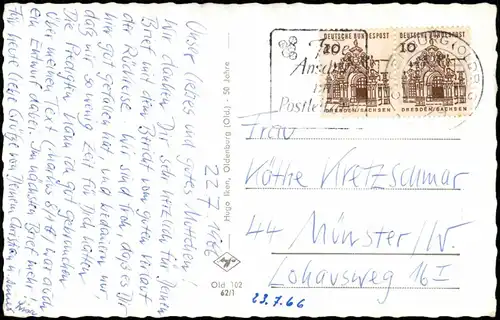 22.7.1966
Unser liebes und gutes Muttchen!
Wir danken Dir sehr herzlich für Deinen
Brief mit dem Bericht vom guten Verlauf
der Rückreise. Wir sind froh, daß es Dir
hier gut gefallen hat, und bedauern nur,
daß wir so wenig Zeit für Dich hatten
Die Predigten kann ich gut gebrauchen
Über meinen Text (Markus 8/1 ff) war auch
ein Entwurf dabei. Im nächsten Brief mehr!
Für heute liebe Grüße von Deinem Christian u.
Hugo Iken, Oldenburg (Old.) - 50 Jahre
Agfa
Old 102
62/1
DEUTSCHE BUNDESPOST
10
DRESDEN/SACHSEN
DEUTSCHE BUNDESPOST
10
DRESDEN/SACHSEN
Postleitz
Frau
Käthe Kretzschmar
44 Münster/W.
Lohausweg 16 I
23.7.66